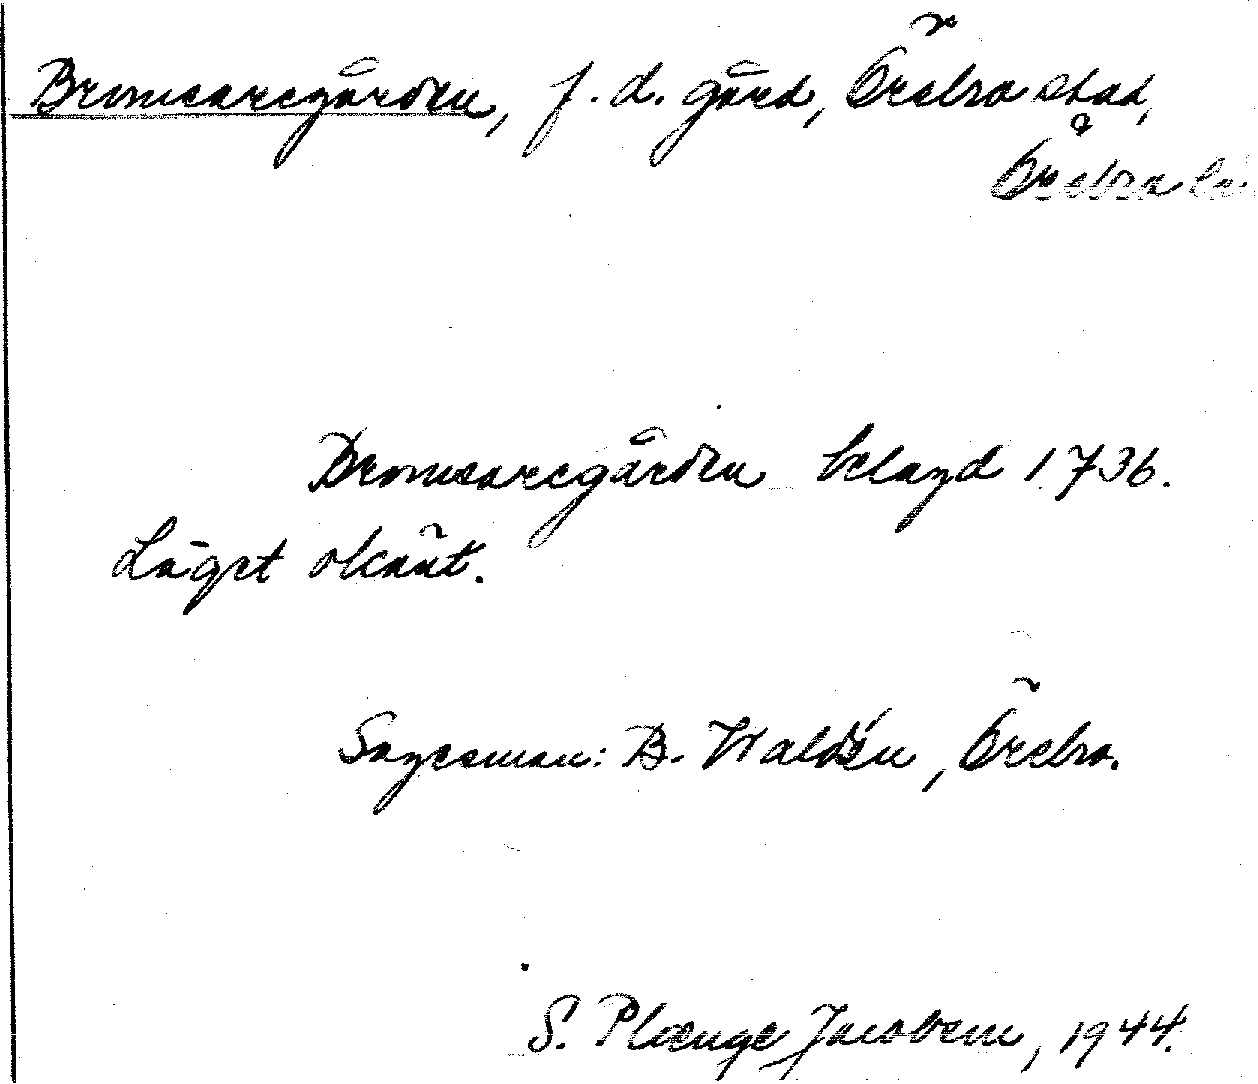 Bromsaregården, f. d. gård, Örebro stad,
Örebro lä
Bromsaregården belagd 1736.
Läget okänt.
Sagesman: B. Waldén, Örebro.
S. Plænge Jacobson, 1944.